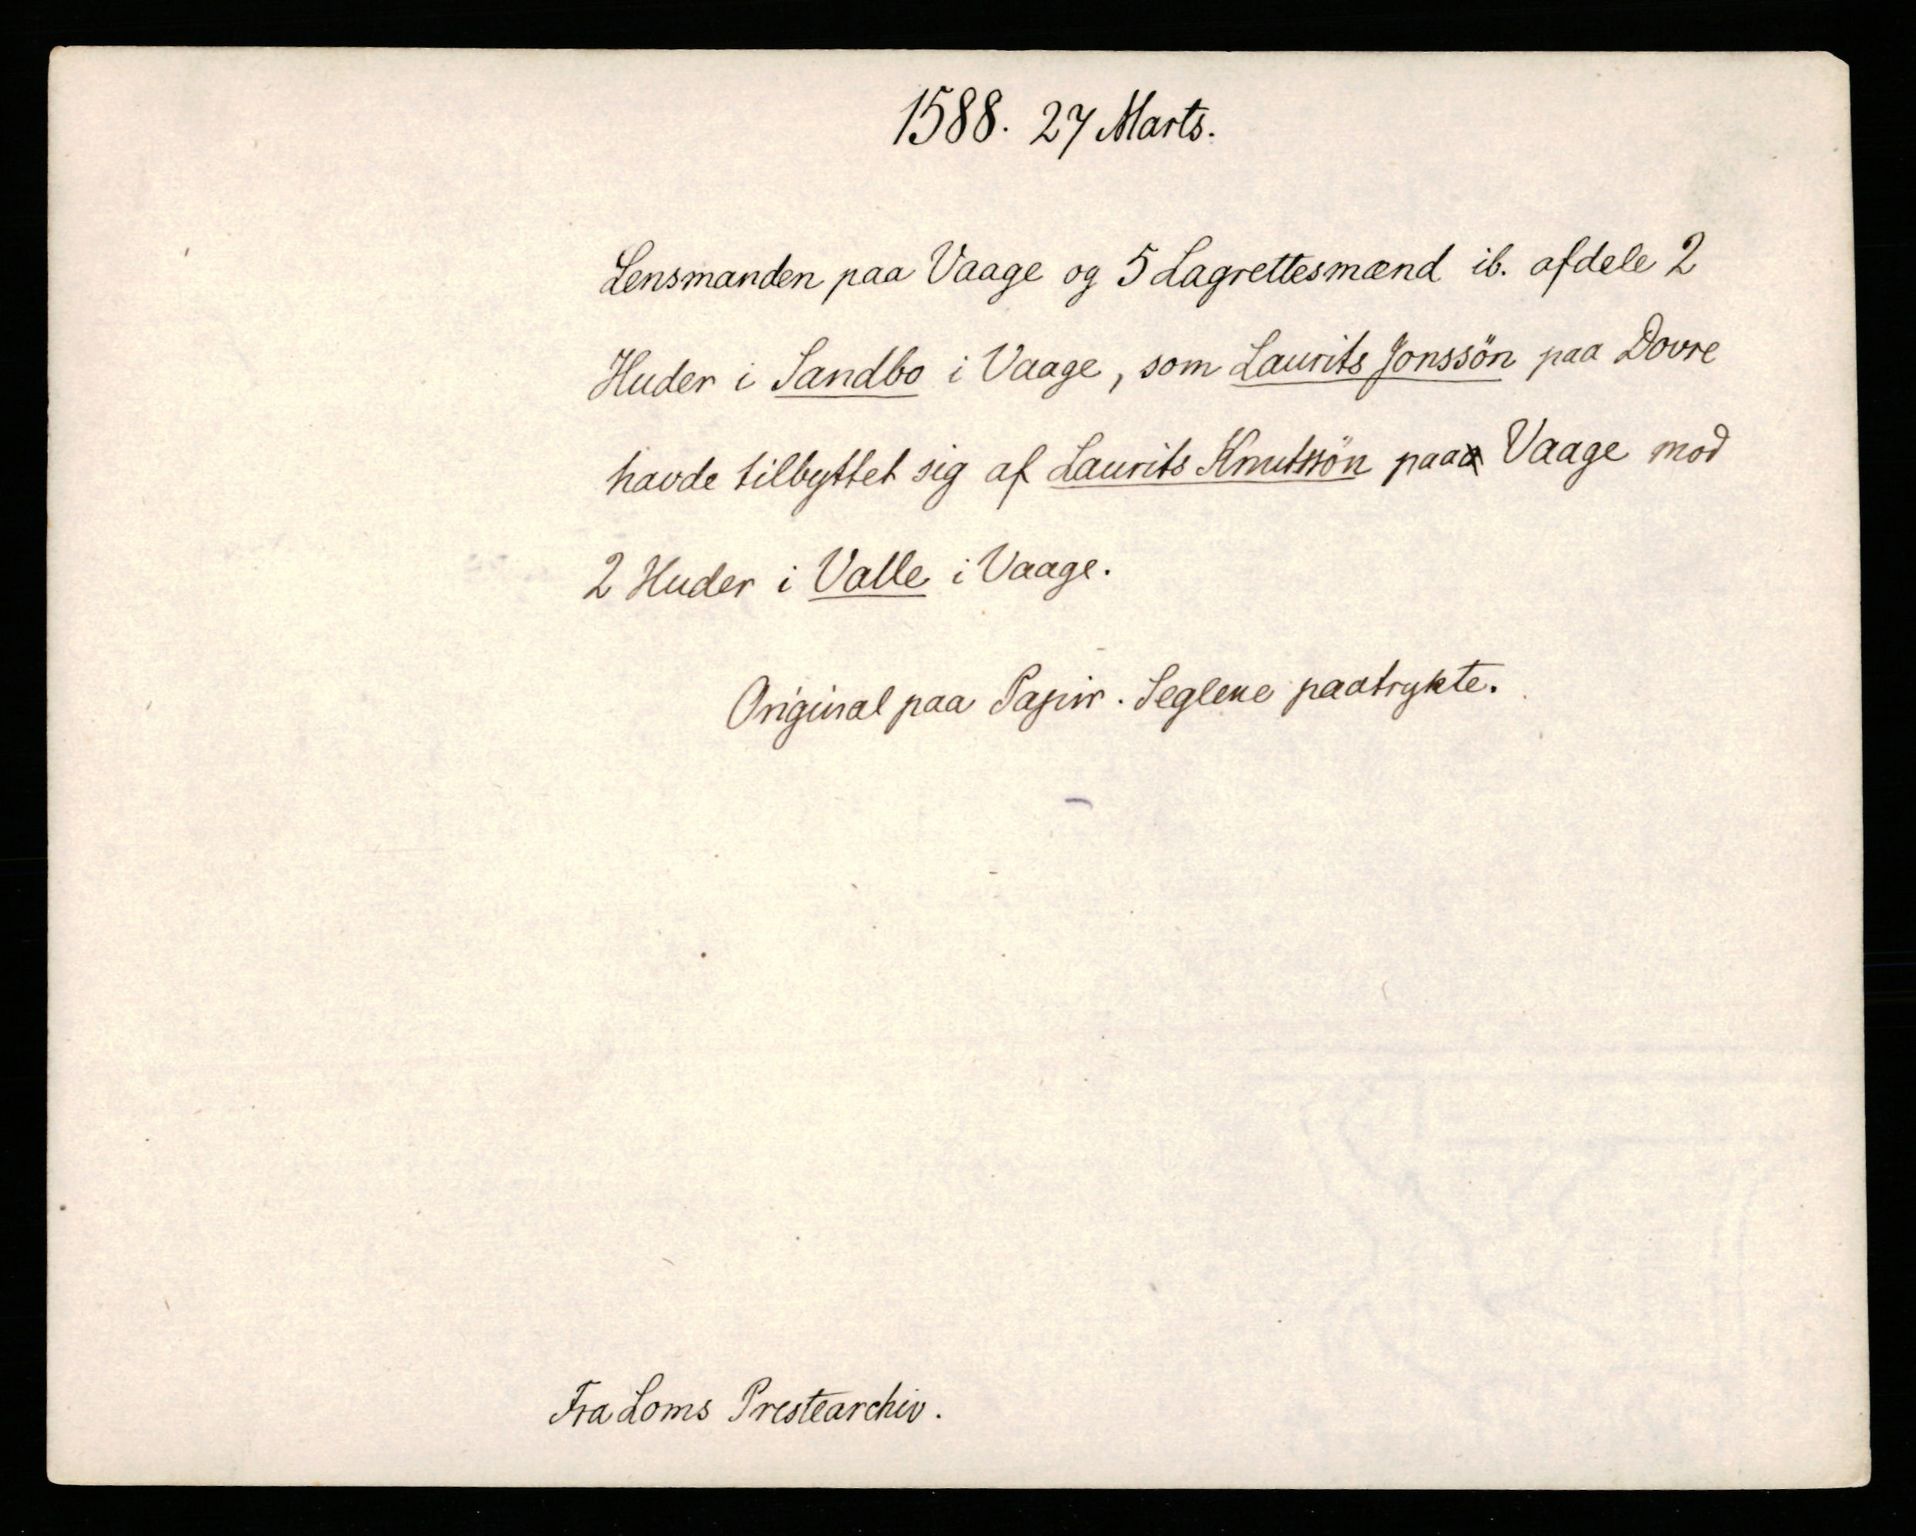 1588. 27 Marts.
Lensmanden paa Vaage og 5 Lagrettesmænd ib. afdele 2
Huder i Sandbo i Vaage, som Laurits Jonssön paa Dovre
havde tilbyttet sig af Laurits Knutssön paa Vaage mod
2 Huder i Valle i Vaage.
Original paa Papir. Seglene paatrykte.
Fra Loms Prestearchiv.